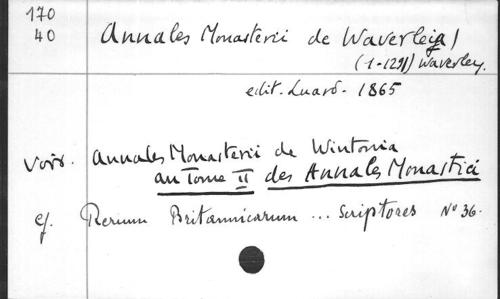 170
40
Annales Monasterii de Waverleya /
(1-1291) Waverley.
edit. Luard. 1865
Voir. Annales Monasterii de Wintonia
au Tome II des Annales Monastici
cf. Rerum Britannicarum ... Scriptores N° 36.